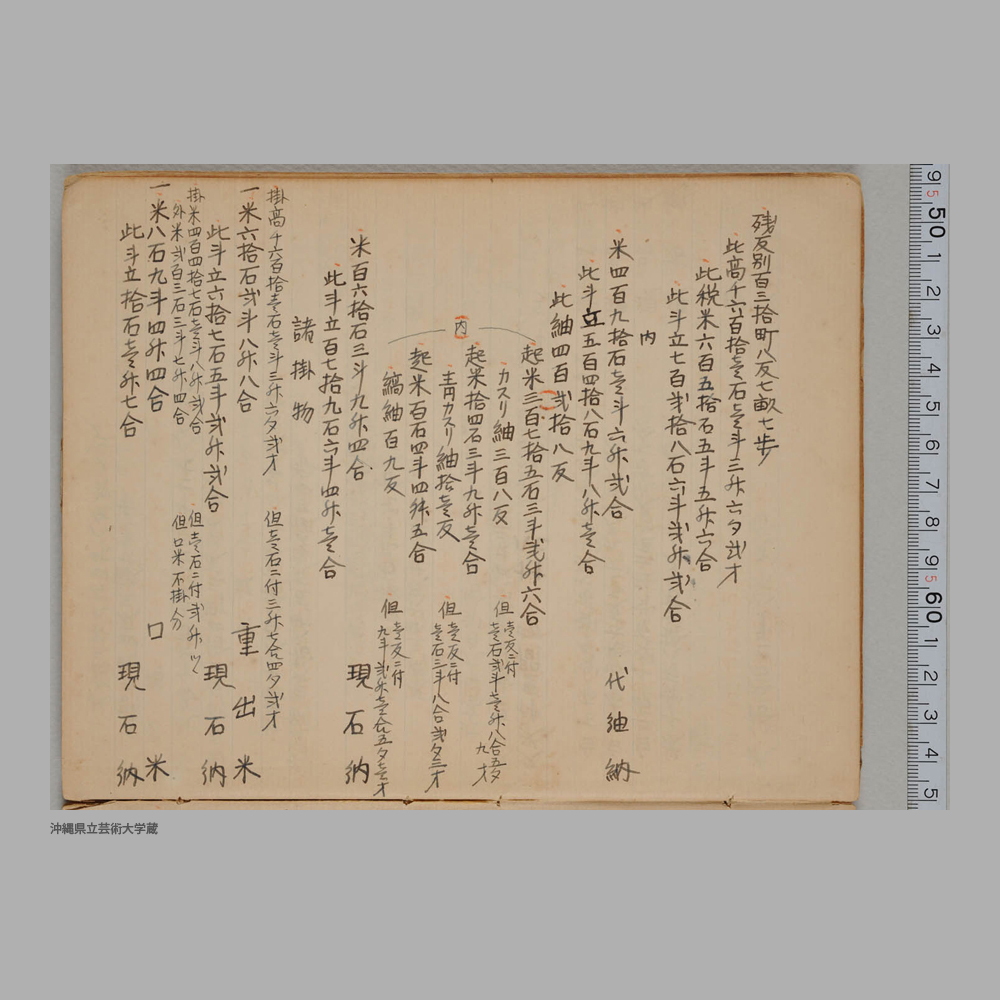 残反別百三拾町八反七畝七歩
此高千六百拾壱石壱斗三升六夕弐才
此税米六百五拾石五斗五升六合
此斗立七百弐拾八石六斗弐升弐合
内
米四百九拾石壱斗六升弐合 代紬納
此斗立五百四拾八石九斗八升壱合
此紬四百弐拾八反
起米三百七拾五石三斗弐升六合
カスリ紬三百八反 但壱反ニ付壱石弐斗壱升八合五夕九才
起米拾四石三斗九升壱合
内
青カスリ紬拾壱反 但壱反ニ付壱石三斗八合弐夕三才
起米百石四斗四升五合
縞紬百九反 但壱反ニ付九斗弐升壱合五夕壱才
米百六拾石三斗九升四合 現石納
此斗立百七拾九石六斗四升壱合
諸掛物
掛高千六百拾壱石壱斗三升六夕弐才 但壱石ニ付三升七合四夕弐才
一米六拾石弐斗八升八合 重出米
此斗立六拾七石五斗弐升弐合 現石納
掛米四百四拾七石壱斗八升弐合 但壱石ニ付弐升ツヽ
外米弐百三石三斗七升四合 但口米不掛分
一米八石九斗四升四合 口米
此斗立拾石壱升七合 現石納
9 50 1 2 3 4 5 6 7 8 9 60 1 2 3 4 5
沖縄県立芸術大学蔵